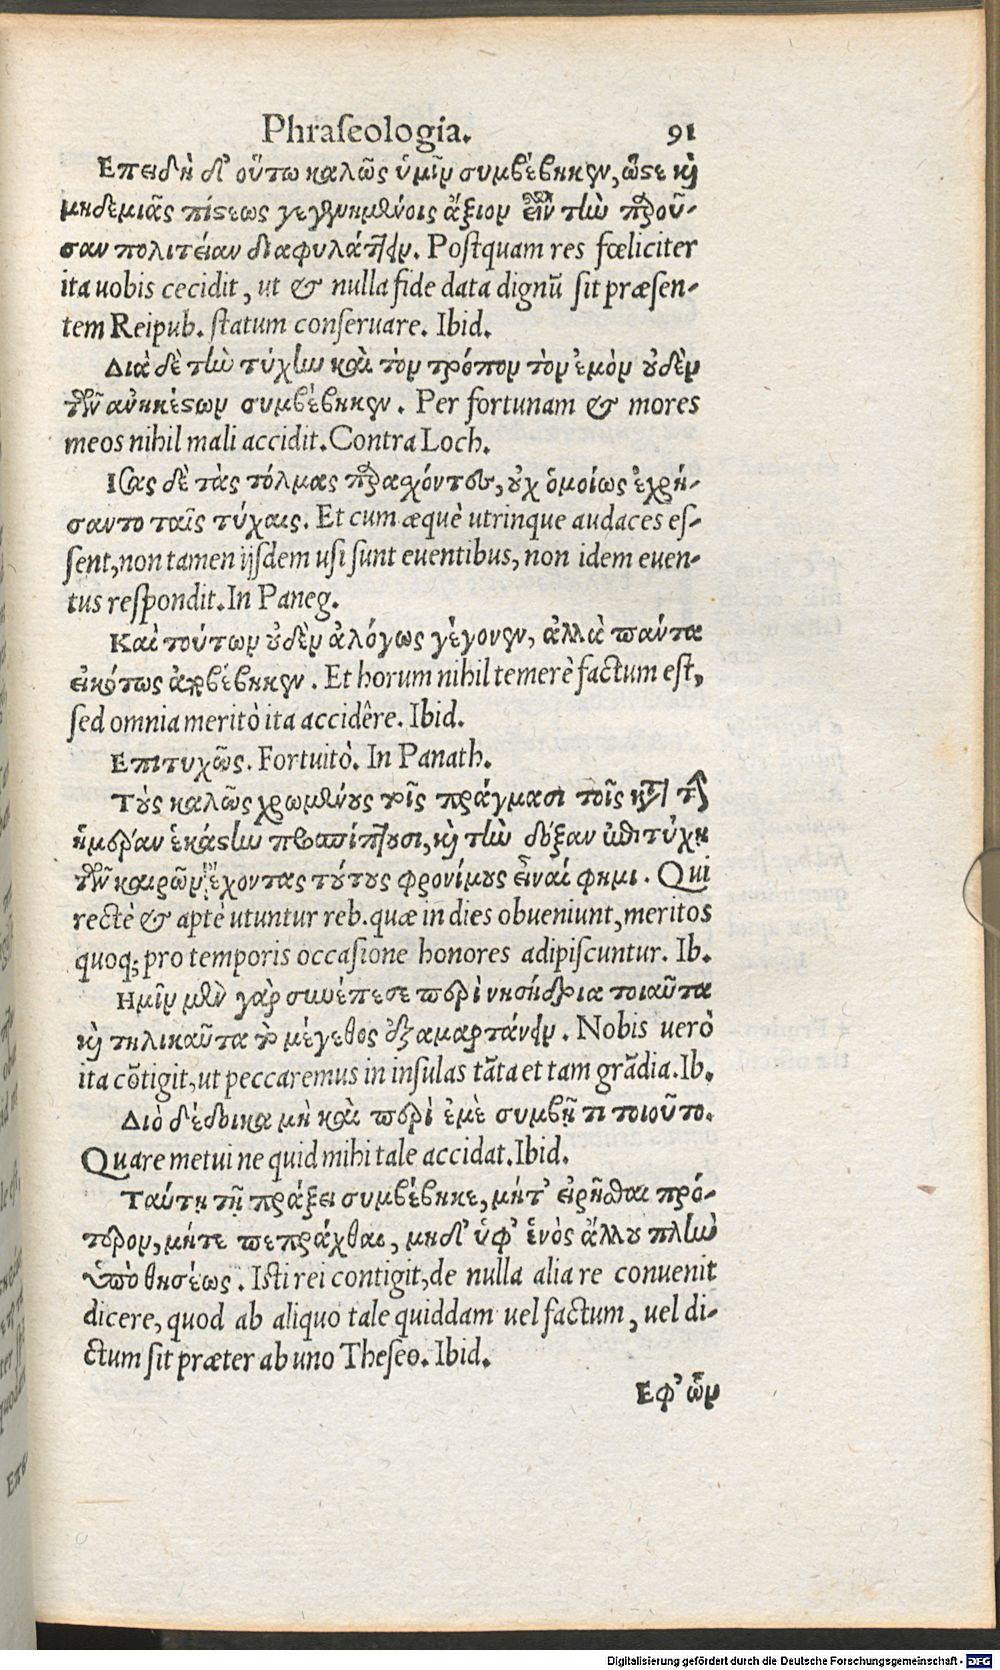 Phraseologia. 91
Επειδὴ δ' οὕτω καλῶς ὑμῖν συμβέβηκεν, ὥστε καὶ
μηδεμιᾶς πίστεως γεγενημένοις ἄξιον εἶναι τὴν παροῦ-
σαν πολιτείαν διαφυλάττειν. Postquam res fœliciter
ita uobis cecidit, ut & nulla fide data dignũ sit præsen-
tem Reipub. statum conseruare. Ibid.
Διὰ δὲ τὴν τύχην καὶ τὸν τρόπον τὸν ἐμὸν οὐδὲν
τῶν ἀνηκέστων συμβέβηκεν. Per fortunam & mores
meos nihil mali accidit. Contra Loch.
Ισας δὲ τὰς τόλμας παρασχόντες, οὐχ ὁμοίως ἐχρή-
σαντο ταῖς τύχαις. Et cum æquè utrinque audaces es-
sent, non tamen ijsdem usi sunt euentibus, non idem euen-
tus respondit. In Paneg.
Καὶ τούτων οὐδὲν ἀλόγως γέγονεν, ἀλλὰ πάντα
εἰκότως ἀποβέβηκεν. Et horum nihil temerè factum est,
sed omnia meritò ita accidêre. Ibid.
Επιτυχῶς. Fortuitò. In Panath.
Τοὺς καλῶς χρωμένους τοῖς πράγμασι τοῖς κατὰ τὴν
ἡμέραν ἑκάστην προσπίπτουσι, καὶ τὴν δόξαν ἐπιτύχῃ
τῶν καιρῶν ἔχοντας τούτους φρονίμους εἶναί φημι. Qui
rectè & aptè utuntur reb. quæ in dies obueniunt, meritos
quoq; pro temporis occasione honores adipiscuntur. Ib.
Ημῖν μὲν γὰρ συνέπεσε περὶ νησύδρια τοιαῦτα
καὶ τηλικαῦτα τὸ μέγεθος ἐξαμαρτάνειν. Nobis uerò
ita cõtigit, ut peccaremus in insulas tãta et tam grãdia. Ib.
Διὸ δέδοικα μὴ καὶ περὶ ἐμὲ συμβῇ τι τοιοῦτο.
Quare metui ne quid mihi tale accidat. Ibid.
Ταύτῃ τῇ πράξει συμβέβηκε, μήτ' εἰρῆσθαι πρό-
τερον, μήτε πεπράχθαι, μηδ' ὑφ' ἑνὸς ἄλλου πλὴν
ὑποθησέως. Isti rei contigit, de nulla alia re conuenit
dicere, quod ab aliquo tale quiddam uel factum, uel di-
ctum sit præter ab uno Theseo. Ibid.
Εφ' ὧν
Digitalisierung gefördert durch die Deutsche Forschungsgemeinschaft - DFG